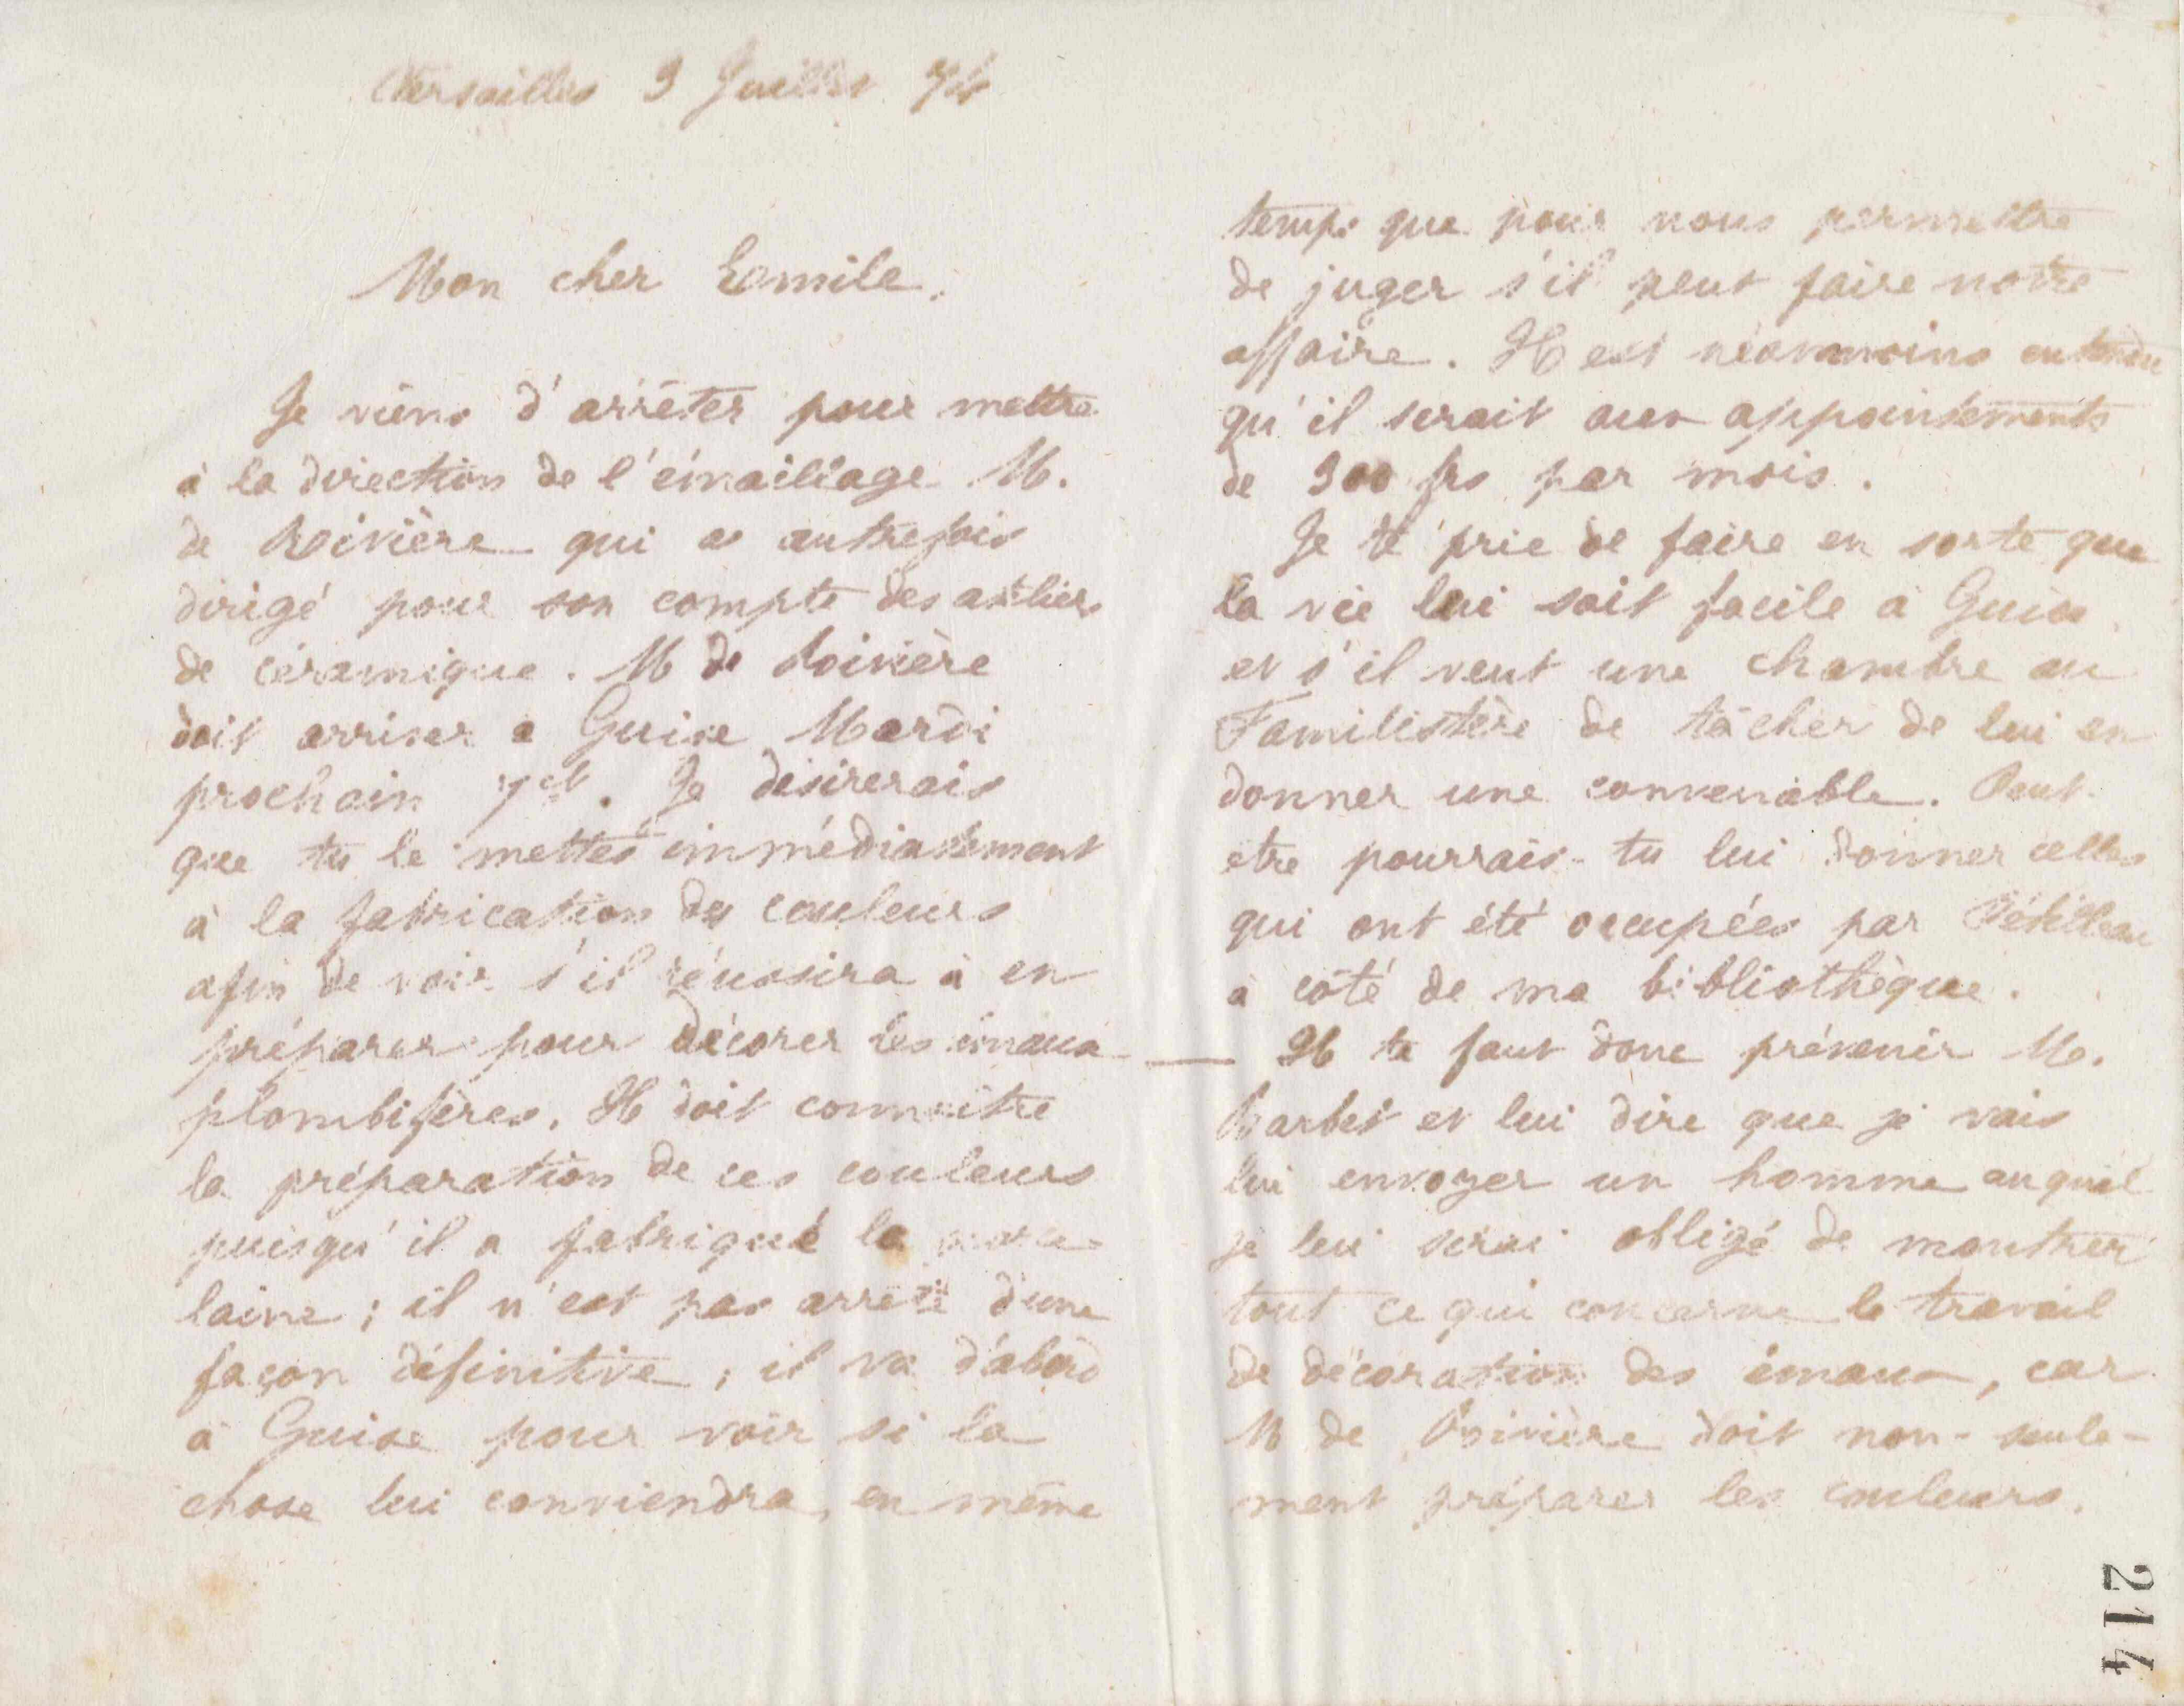 Versailles 3 Juillet 74
Mon cher Emile.
Je viens d'arrêter pour mettre
à la direction de l'émaillage M.
de Boivière qui a autrefois
dirigé pour son compte des ateliers
de céramique. M de Boivière
doit arriver a Guise Mardi
prochain 7 ct. Je desirerais
que tu le mettes immédiatement
à la fabrication des couleurs
afin de voir s'il réussira à en
préparer pour décorer les émaux
plombifères. Il doit connaitre
la préparation de ces couleurs
puisqu'il a fabriqué la porce-
laine ; il n'est pas arrêté d'une
façon définitive ; il va d'abord
à Guise pour voir si la
chose lui conviendra, en même
temps que pour nous permettre
de juger s'il peut faire notre
affaire. Il est néanmoins entendu
qu'il serait aux appointements
de 300 frs par mois.
Je te prie de faire en sorte que
la vie lui soit facile à Guise
et s'il veut une chambre au
Familistère de tâcher de lui en
donner une convenable. Peut-
etre pourrais-tu lui donner celles
qui ont été occupées par
à côté de ma bibliothèque.
— Il te faut donc prévenir M.
Barbet et lui dire que je vais
lui envoyer un homme auquel
je lui serai obligé de montrer
tout ce qui concerne le travail
de décoration des émaux, car
M de Boivière doit non-seule-
ment préparer les couleurs.
214